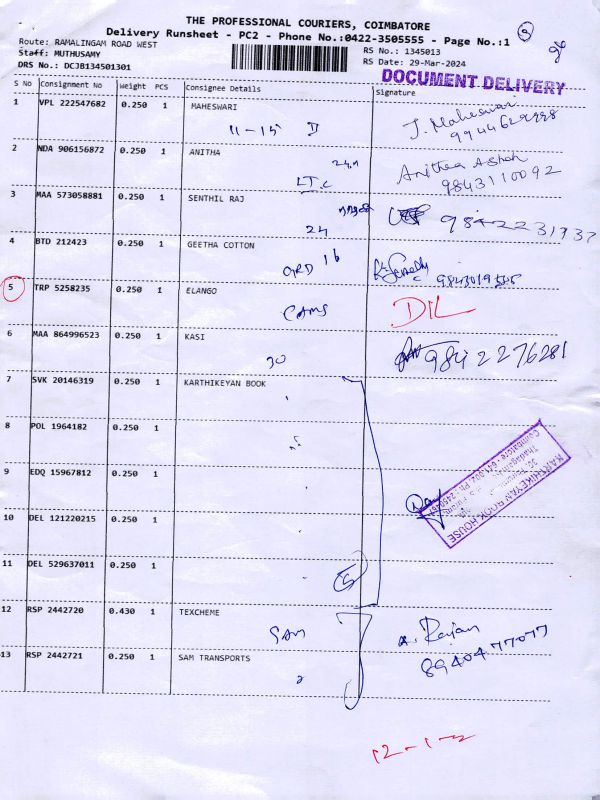 THE PROFESSIONAL COURIERS, COIMBATORE
Delivery Runsheet - PC2 - Phone No.:0422-3505555 - Page No.:1
Route: RAMALINGAM ROAD WEST
Staff: MUTHUSAMY
DRS No.: DCJB134501301
RS No.: 1345013
RS Date: 29-Mar-2024
DOCUMENT DELIVERY
S No Consignment No Weight PCS Consignee Details Signature
1 VPL 222547682 0.250 1 MAHESWARI
11-15 II
J. Maheswari
2 NDA 906156872 0.250 1 ANITHA
LT.C
9843110092
3 MAA 573058881 0.250 1 SENTHIL RAJ
24
4 BTD 212423 0.250 1 GEETHA COTTON
GRD 16
5 TRP 5258235 0.250 1 ELANGO
CAMS
DIL
6 MAA 864996523 0.250 1 KASI
30
9842276281
7 SVK 20146319 0.250 1 KARTHIKEYAN BOOK
8 POL 1964182 0.250 1
9 EDQ 15967812 0.250 1
10 DEL 121220215 0.250 1
11 DEL 529637011 0.250 1
5
KARTHIKEYAN BOOK HOUSE
12 RSP 2442720 0.430 1 TEXCHEME
SAM
A. Rajan
8940477077
13 RSP 2442721 0.250 1 SAM TRANSPORTS
12-1-2